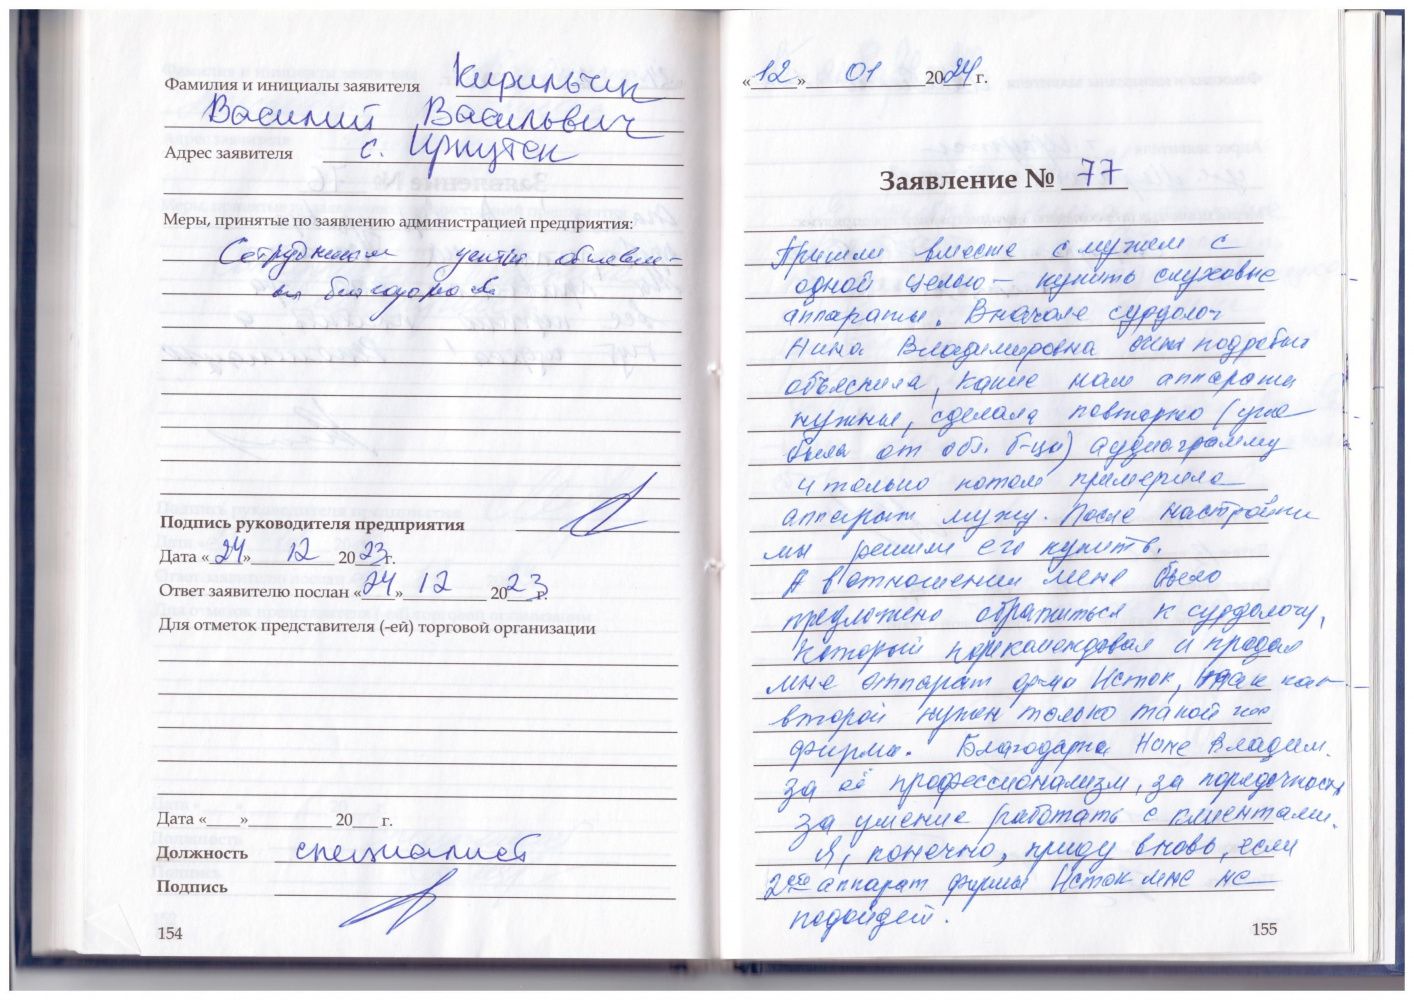 Фамилия и инициалы заявителя Кирильчик
Василий Васильевич
Адрес заявителя с. Иркутск
Меры, принятые по заявлению администрацией предприятия:
Сотрудникам устно объявле-
на благодарность
Подпись руководителя предприятия
Дата «24» 12 2023г.
Ответ заявителю послан «24» 12 2023г.
Для отметок представителя (-ей) торговой организации
Дата «___»__________ 20___ г.
Должность специалист
Подпись
154
«12» 01 2024 г.
Заявление № 77
Пришли вместе с мужем с
одной целью – купить слуховые
аппараты. Вначале сурдолог
Нина Владимировна очень подробно
объяснила, какие нам аппараты
нужны, сделала повторно (уже
была от обл. б-цы) аудиаграмму
и только потом примерила
аппарат мужу. После настройки
мы решили его купить.
А в отношении меня было
предложено обратиться к сурдологу,
который порекомендовал и продал
мне аппарат ф-мы Исток, так как
второй нужен только такой же
фирмы. Благодарна Нине Владим.
за её профессионализм, за порядочность
за умение работать с клиентами.
Я, конечно, приду вновь, если
2ой аппарат фирмы Исток мне не
подойдет.
155